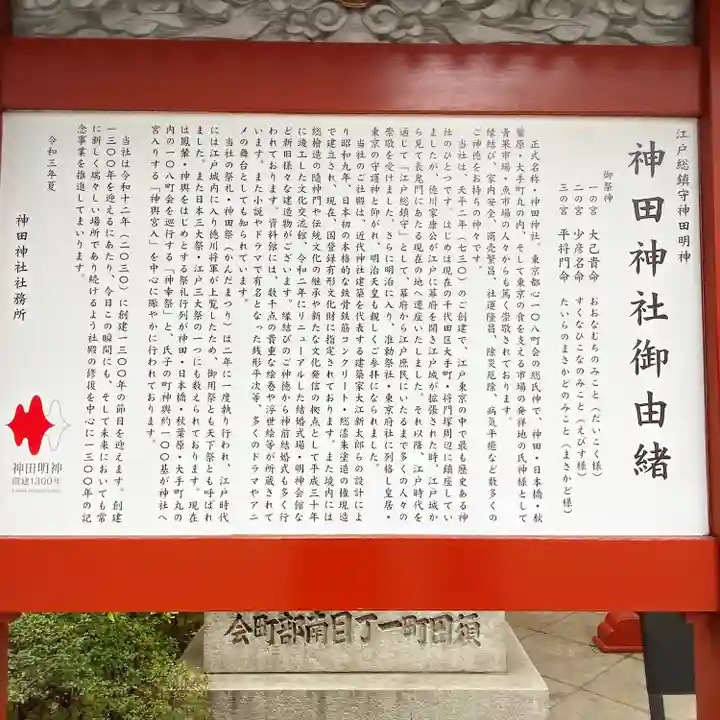 江戸総鎮守神田明神
神田神社御由緒
御祭神
一の宮 大己貴命 おおなむちのみこと（だいこく様）
二の宮 少彦名命 すくなひこなのみこと（えびす様）
三の宮 平将門命 たいらのまさかどのみこと（まさかど様）
正式名称・神田神社。東京都心一〇八町会の総氏神で、神田・日本橋・秋
葉原・大手町丸の内、そして東京の食を支える市場の発祥地の氏神様として
青果市場・魚市場の人々からも篤く崇敬されております。
縁結び、家内安全、商売繁昌、社運隆昌、除災厄除、病気平癒など数多くの
ご神徳をお持ちの神々です。
当社は、天平二年（七三〇）のご創建で、江戸東京の中で最も歴史ある神
社のひとつです。はじめは現在の千代田区大手町・将門塚周辺に鎮座してい
ましたが、徳川家康公が江戸に幕府を開き江戸城が拡張された時、江戸城か
ら見て表鬼門にあたる現在の地へ遷座いたしました。それ以降、江戸時代を
通じて「江戸総鎮守」として、幕府から江戸庶民にいたるまで多くの人々の
崇敬を受けました。さらに明治に入り、准勅祭社・東京府社に列格し皇居・
東京の守護神と仰がれ、明治天皇も親しくご参拝になられました。
当社のご社殿は、近代神社建築を代表する建築家大江新太郎らの設計によ
り昭和九年、日本初の本格的な鉄骨鉄筋コンクリート・総漆朱塗の権現造
で建立され、現在、国登録有形文化財に指定されております。また境内には
総檜造の随神門や伝統文化の継承や新たな文化発信の拠点として平成三十年
に竣工した文化交流館、令和二年にリニューアルした結婚式場・明神会館な
ど新旧様々な建造物がございます。縁結びのご神徳から神前結婚式も多く行
われております。資料館には、数千点の貴重な絵巻や浮世絵等が所蔵されて
います。また小説やドラマで有名となった銭形平次等、多くのドラマやアニ
メの舞台としても知られています。
当社の祭礼・神田祭（かんだまつり）は二年に一度執り行われ、江戸時代
には江戸城内に入り徳川将軍が上覧したため、御用祭とも天下祭とも呼ばれ
ました。また日本三大祭・江戸三大祭の一つにも数えられております。現在
は鳳輦・神輿をはじめとする祭礼行列が神田・日本橋・秋葉原・大手町丸の
内の一〇八町会を巡行する「神幸祭」と、氏子の町神輿約一〇〇基が神社へ
宮入りする「神輿宮入」を中心に賑やかに行われております。
当社は令和十二年（二〇三〇）に創建一三〇〇年の節目を迎えます。創建
一三〇〇年を迎えるにあたり、今日この瞬間にも、そして未来においても常
に新しく瑞々しい場所であり続けるよう社殿の修復を中心に一三〇〇年の記
念事業を推進してまいります。
令和三年夏
神田神社社務所
神田明神
創建1300年
会町部南目丁一町田須